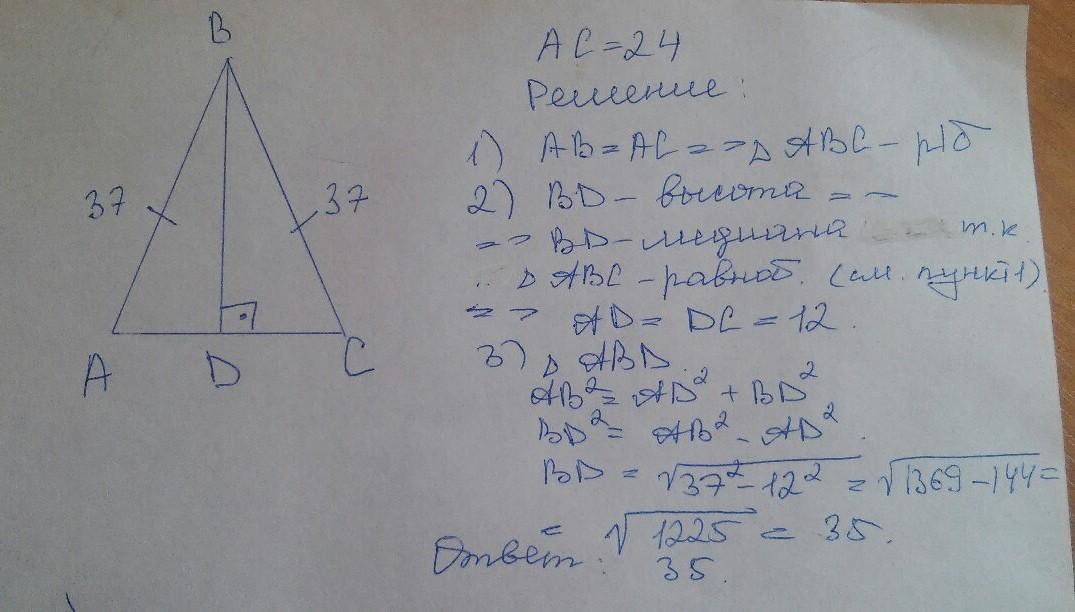 B
37
37
A
D
C
AC=24
Решение:
1) AB=AC=>△ABC- р/б
2) BD- высота =-
=> BD-медиана т.к.
△ABC-равноб. (см. пункт1)
=> AD=DC=12.
3) △ABD.
AB²=AD²+BD²
BD²=AB²-AD².
BD=√37²-12²=√1369-144=
=√1225=35.
Ответ: 35.